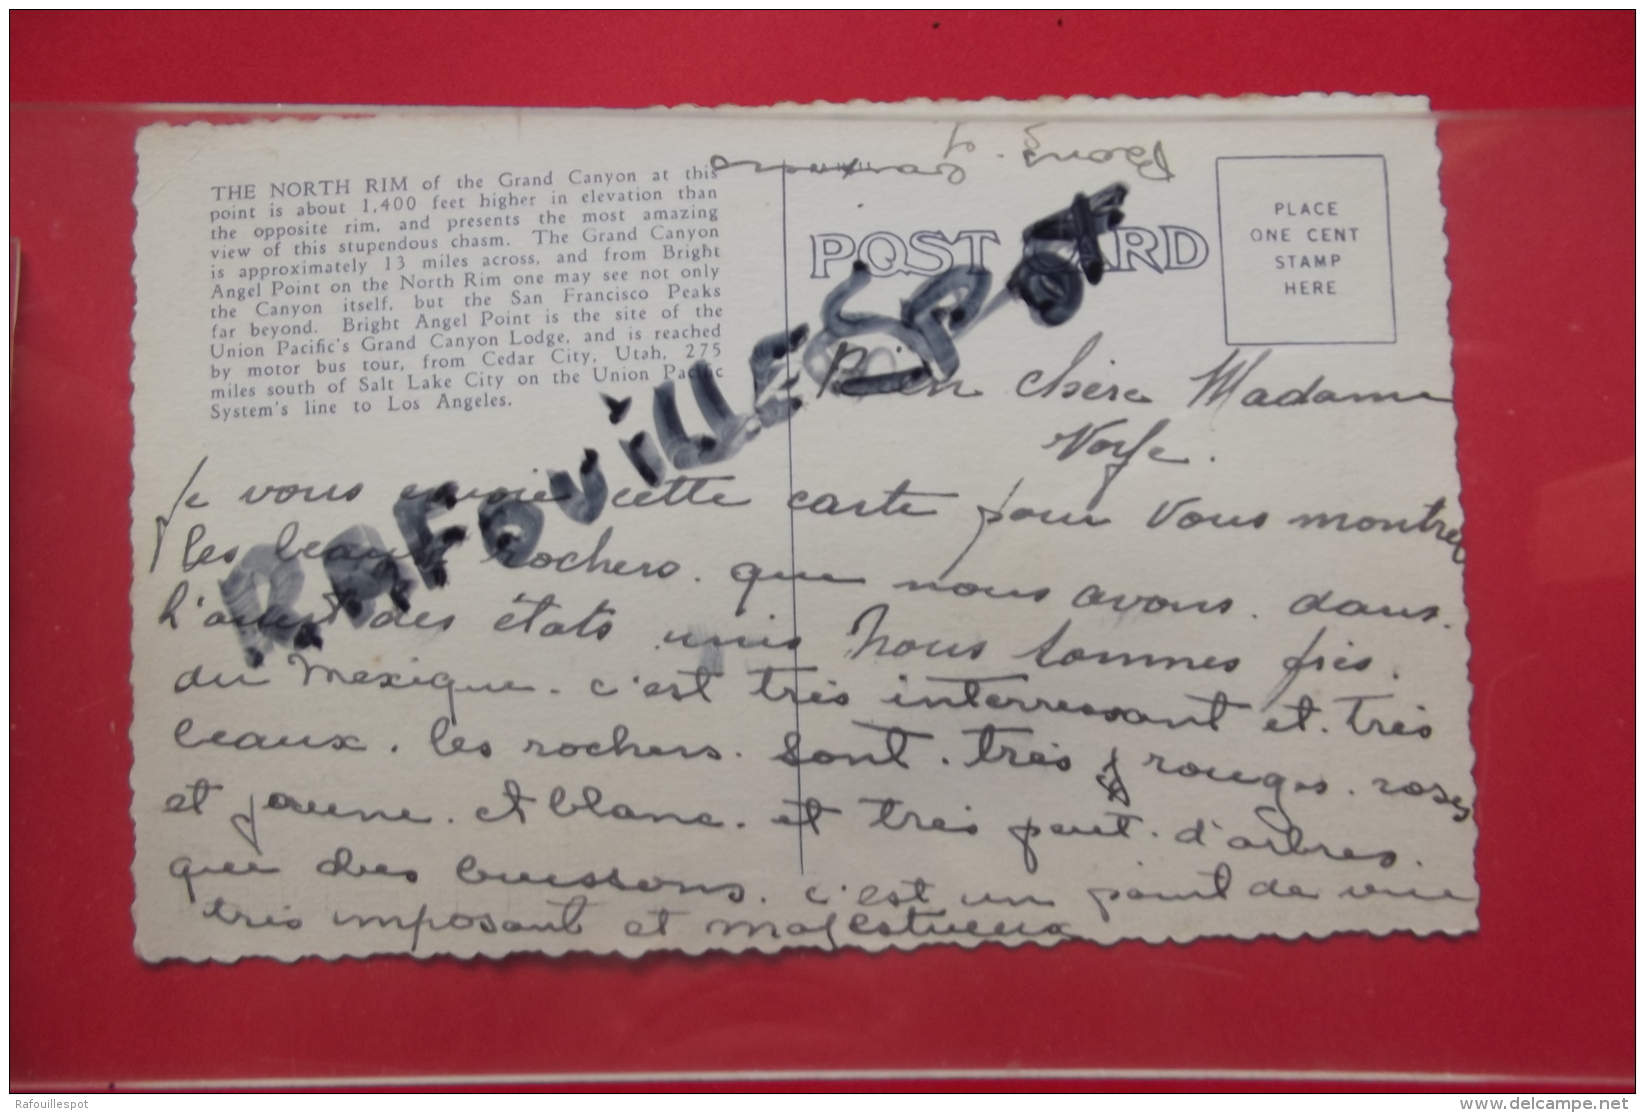 THE NORTH RIM of the Grand Canyon at this
point is about 1,400 feet higher in elevation than
the opposite rim, and presents the most amazing
view of this stupendous chasm. The Grand Canyon
is approximately 13 miles across, and from Bright
Angel Point on the North Rim one may see not only
the Canyon itself, but the San Francisco Peaks
far beyond. Bright Angel Point is the site of the
Union Pacific's Grand Canyon Lodge, and is reached
by motor bus tour, from Cedar City, Utah, 275
miles south of Salt Lake City on the Union Pacific
System's line to Los Angeles.
POST CARD
PLACE
ONE CENT
STAMP
HERE
RAFOUILLESPOT
Bien chère Madame
je vous envoie cette carte pour vous montrer
les beaux rochers. que nous avons. dans.
l'ouest des états unis Nous sommes près.
du Mexique. c'est très interressant et. très
beaux. les rochers. sont. très rouges. roses
et jaune. et blanc. et très peut. d'arbres.
que des buissons. c'est un point de vue
très imposant et majestueux
Rafouillespot
www.delcampe.net